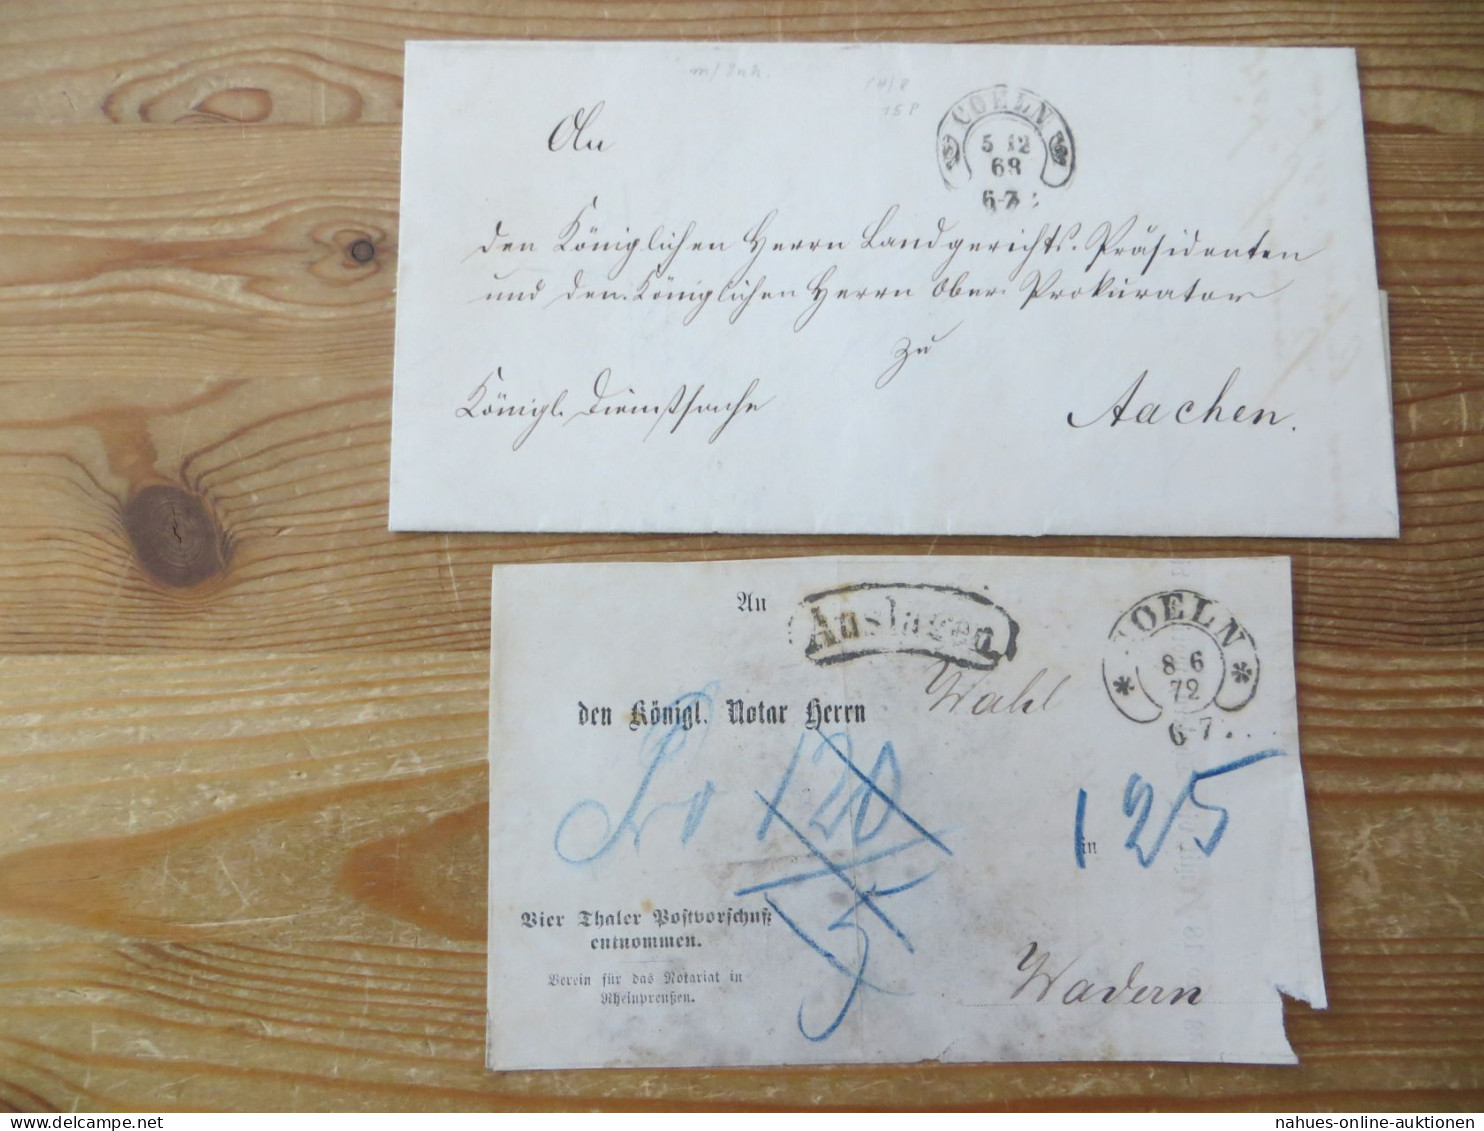 m/Inh.
15 P
COELN
5 12
68
6-7
An
den Königlichen Herrn Landgerichts-Präsidenten
und den Königlichen Herrn Ober-Prokurator
zu
Aachen.
Königl. Dienstsache
An
Auslagen
COELN
8 6
72
6-7
den Königl. Notar Herrn
Wahl
120
in
125
Vier Thaler Postvorschuß
entnommen.
Verein für das Notariat in
Rheinpreußen.
Wadern
nahues-online-auktionen